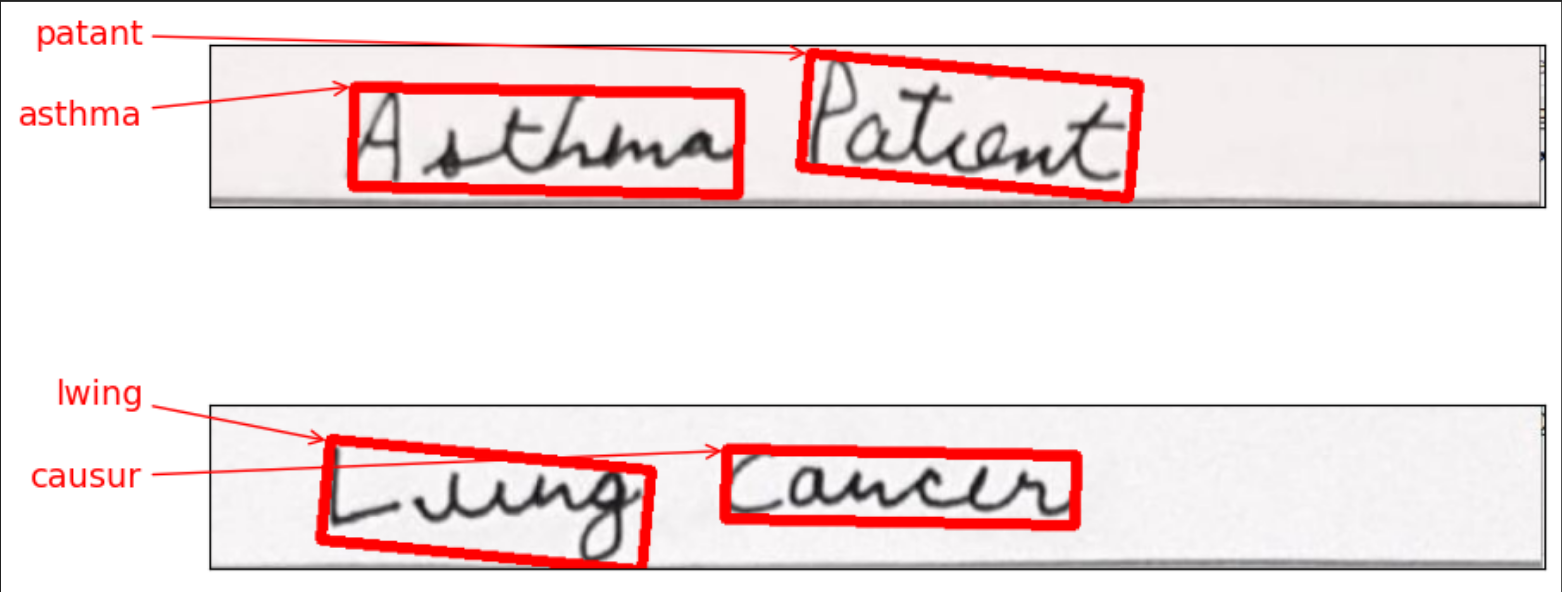 patant
asthma
Asthma Patient
lwing
causur
Lung Cancer